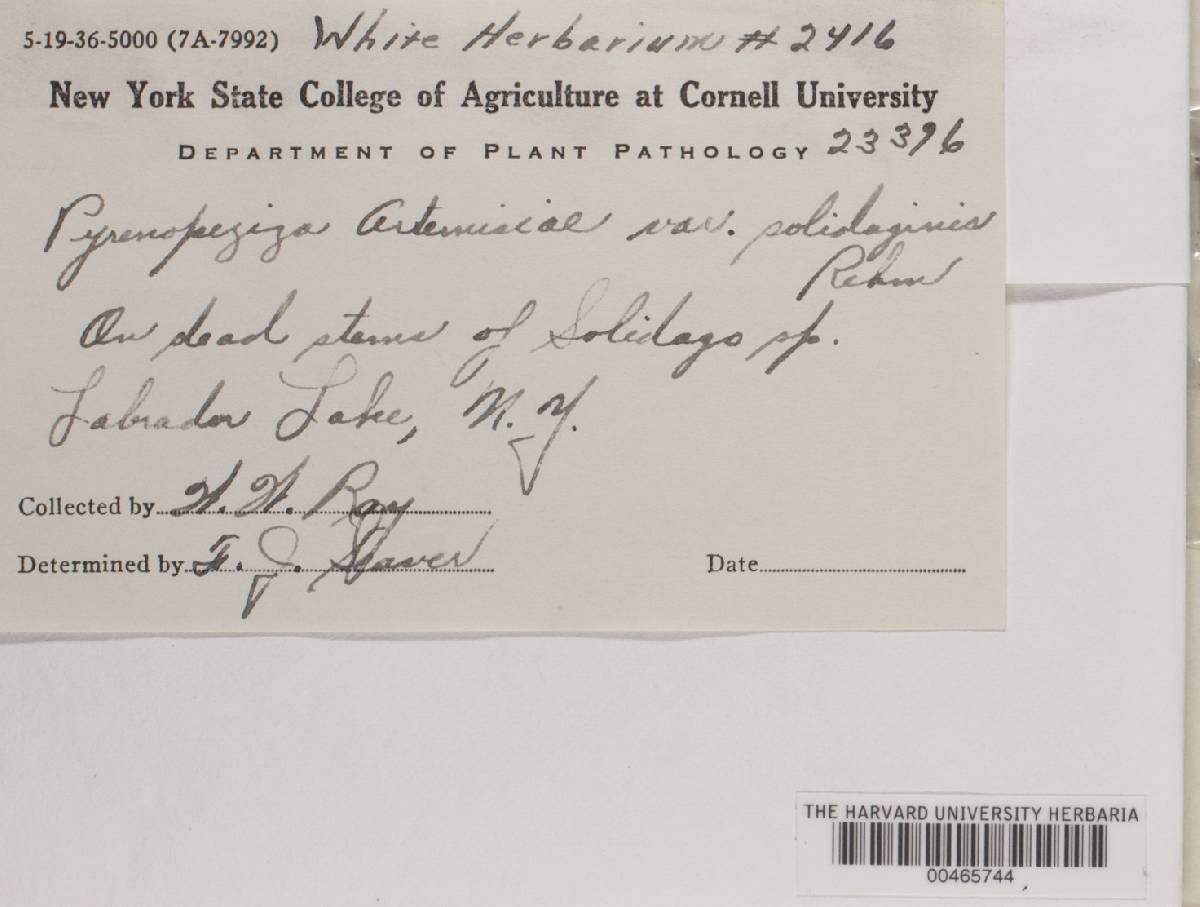 5-19-36-5000 (7A-7992) White Herbarium # 2416
New York State College of Agriculture at Cornell University
DEPARTMENT OF PLANT PATHOLOGY 23396
Pyrenopeziza Artemisiae var. solidaginis
Rehm
On dead stems of Solidago sp.
Labrador Lake, N.Y.
Collected by W. W. Ray
Determined by F. J. Seaver
Date
THE HARVARD UNIVERSITY HERBARIA
00465744